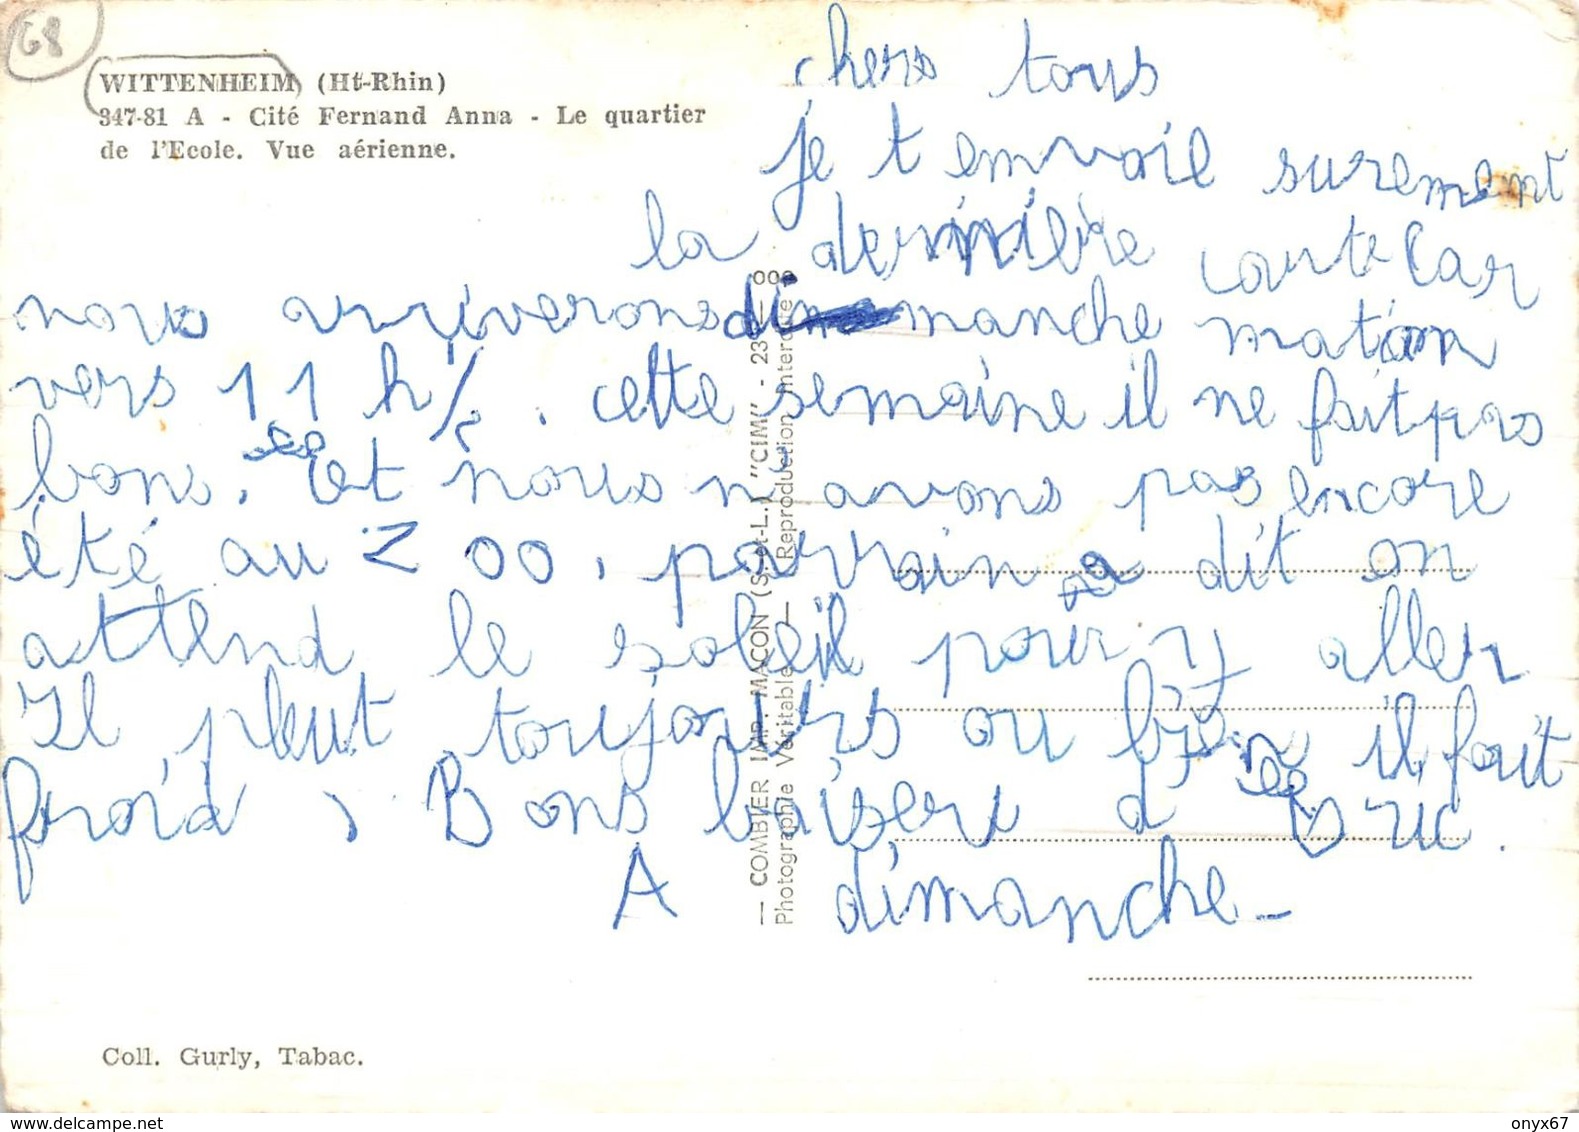 68
WITTENHEIM (Ht-Rhin)
347-81 A - Cité Fernand Anna - Le quartier
de l'Ecole. Vue aérienne.
chers tous
je t envoie surement
la dernière carte Car
nous arriverons dimanche matin
vers 11 h/2. cette semaine il ne fait pas
bons. et nous n avons pas encore
été au ZOO, parrain a dit on
attend le soleil pour y aller
Il pleut toujours ou bien il fait
froid, Bons baisers d'Eric.
A dimanche_
— COMBIER IMP. MACON (S.-et-L.) "CIM" - 23
Photographie Véritable — Reproduction interdite
Coll. Gurly, Tabac.
www.delcampe.net
onyx67